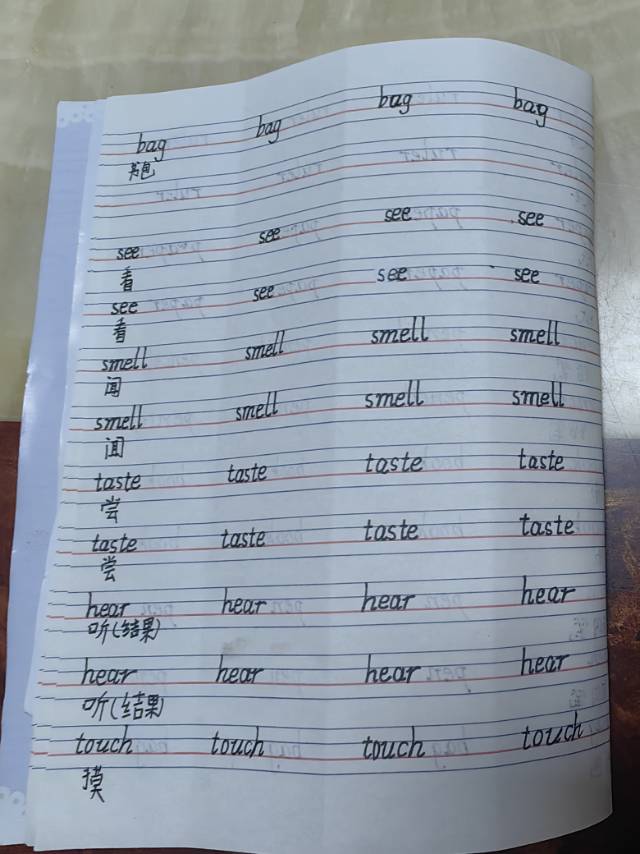 bag bag bag bag
书包
see see see see
看
see see see see
看
smell smell smell smell
闻
smell smell smell smell
闻
taste taste taste taste
尝
taste taste taste taste
尝
hear hear hear hear
听(结果)
hear hear hear hear
听(结果)
touch touch touch touch
摸